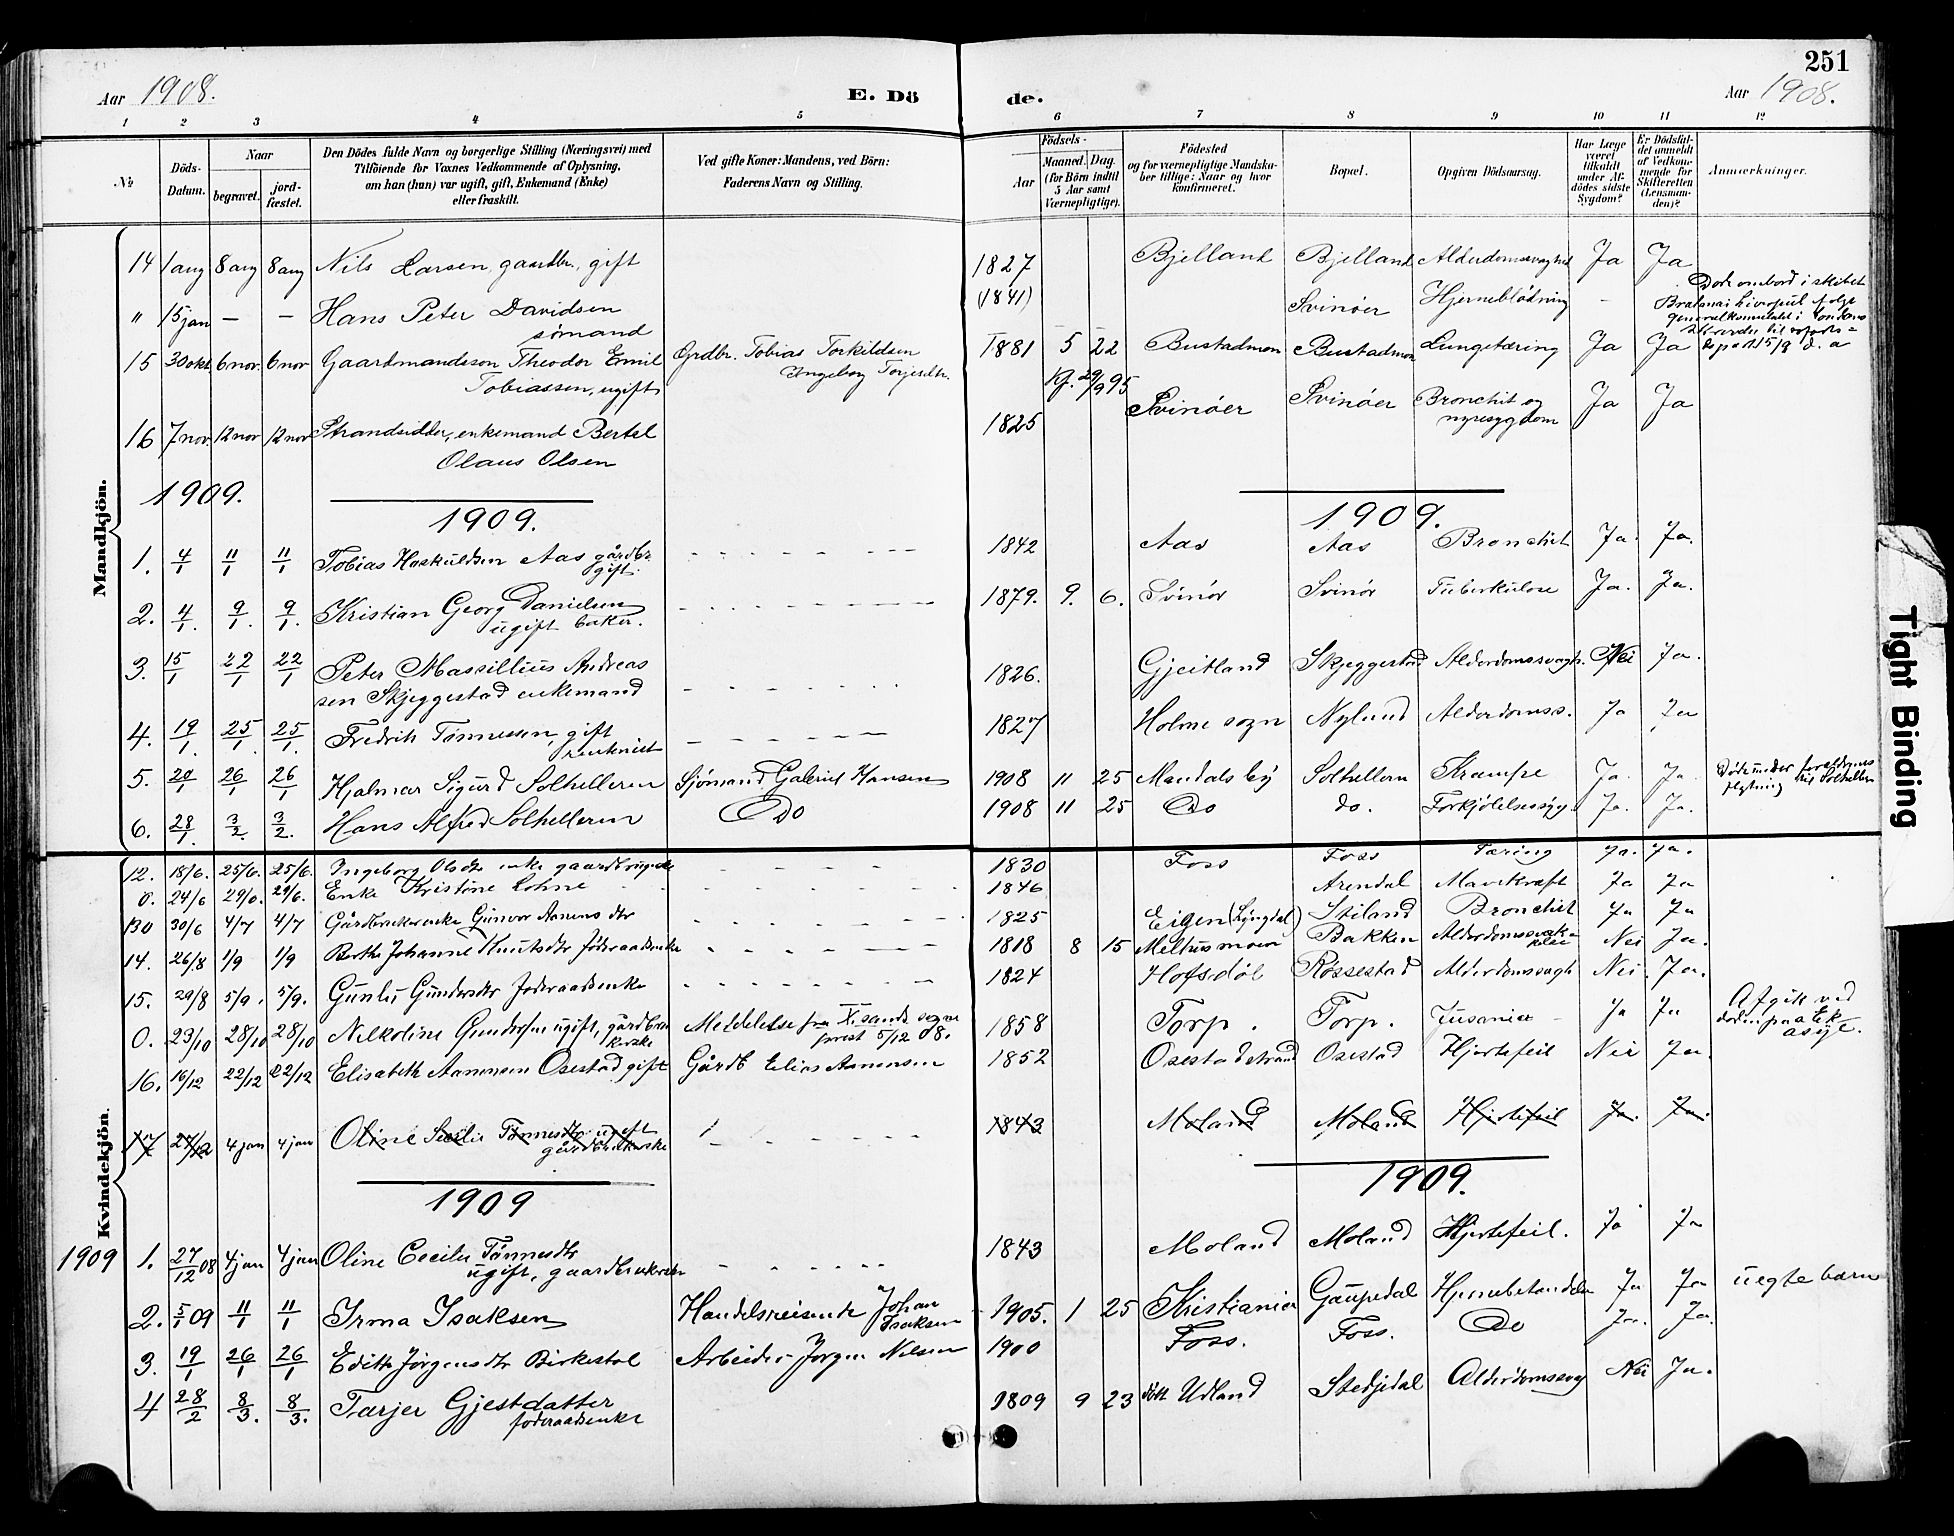 251
Aar 1908. E. Dö de. Aar 1908.
1 2 3 4 5 6 7 8 9 10 11 12
№ Döds-Datum. Naar begravet. jord-fæstet. Den Dödes fulde Navn og borgerlige Stilling (Næringsvei) med Tilföiende for Voxnes Vedkommende af Oplysning, om han (hun) var ugift, gift, Enkemand (Enke) eller fraskilt. Ved gifte Koner: Mandens, ved Börn: Faderens Navn og Stilling. Födsels- Aar Maaned. Dag. (for Börn indtil 5 Aar samt Værnepligtige). Födested og for værnepligtige Mandska-ber tillige: Naar og hvor konfirmeret. Bopæl. Opgiven Dödsaarsag. Har Læge været tilkaldt under Af-dödes sidste Sygdom? Er Dödsfal-det anmeldt af Vedkom-mende for Skifteretten (Lensman-den)? Anmærkninger.
Mandkjön.
14 1 aug 8 aug 8 aug Nils Larsen, gaardbr., gift 1827 Bjelland Bjelland Alderdomssvaghed Ja Ja
" 15 jan — — Hans Peter Davidsen (1841) Svinöer Hjerneblödning - Döde ombord i skibet
sömand
15 30 okt 6 nov. 6 nov Gaardmandssön Theodor Emil Grdbr. Tobias Torkildsen 1881 5 22 Bustadmon Bustadmon Lungetæring Ja Ja
Tobiassen, ugift Ingeborg Torjesdtr. Kf. 29/9 95
16 7 nov. 12 nov 12 nov Strandsidder, enkemand Bertel 1825 Svinöer Svinöer Bronchit og nyresygdom Ja Ja
Olaus Olsen
1909.
1909. 1909.
1. 4/1 11/1 11/1 Tobias Haskuldsen Aas gårdbr. gift. 1842 Aas Aas Bronchit Ja. Ja.
2. 4/1. 9/1. 9/1. Kristian Georg Danielsen 1879. 9. 6. Svinör Svinör Tuberkulose Ja. Ja.
ugift baker.
3. 15/1 22/1 22/1 Peter Massillius Andreas 1826. Gjeitland Skjeggestad Alderdomssvagh. Nei Ja.
sen Skjeggestad enkemand
4. 19/1. 25/1. 25/1. Fredrik Tönnessen, gift 1827 Holme sogn Nylund Alderdomss. Ja Ja
5. 20/1 26/1 26/1 Hjalmar Sigurd Solhelleren Sjömand Gabriel Hansen 1908 11 25 Mandals by Solhellern Krampe Ja. Ja.
6. 28/1 3/2. 3/2. Hans Alfred Solhelleren Do 1908 11 25 Do do. Forkjölelsessyg. Ja. Ja.
Kvindekjön.
12. 18/6. 25/6. 25/6. Ingeborg Olsdtr enke 1830 Foss Foss Tæring Ja. Ja.
0. 24/6 29/6. 29/6. Enke Kristine Lohne 1846 Arendal Mavekræft Ja Ja
130 30/6 4/7 4/7 Gårdbrukerenke Gunvor Aanens dtr 1825 Eigen (Lyngdal) Stiland Bronchit Ja Ja
14. 26/8 1/9 1/9 Berthe Johanne Knutsdtr Föderaadsenke 1818 8 15 Melhusmoen Bakken Nei Ja.
15. 29/8 5/9. 5/9. Gunlu Gundersdtr Föderaadsenke 1824 Hofsdöl Rössestad Alderdomssvagh Nei. Ja.
0. 23/10 28/10 28/10 Nelkoline Gundersen ugift, Meddelelse fra X.sands sogne prest 5/12 08. 1858 Torp. Torp. Ja Ja Afgik ved döden paa
16. 16/12 22/12 22/12 Elisabeth Aanensen Osestad gift Gårdb Elias Aanensen 1852 Osestadstrand Osestad Hjertefeil Nei Ja.
17 27/12 4 jan 4 jan Oline Secilie Tönnesdtr ugift 1843 Moland Moland Hjertefeil Ja. Ja.
1909 1909.
1909 1. 27/12 08 4 jan 4 jan Oline Cecilie Tönnesdtr 1843 Moland Moland Hjertefeil. Ja Ja
ugift,
2. 5/1 09 11/1 11/1 Irma Isaksen Handelsreisende Johan Isaksen 1905. 1 25 Kristiania Gaupedal Hjernebetændelse Ja Ja uegte barn
3. 19/1 26/1 26/1 Edith Jörgensdtr Birkestöl Arbeider Jörgen Nilsen 1900 Foss. Foss. Do Ja. Ja.
4 28/2 8/3. 8/3. Tarjer Gjestdatter 1809 9 23 Udland Stedjedal Alderdomssvag Nei Ja.
föderaadsenke
Tight Binding